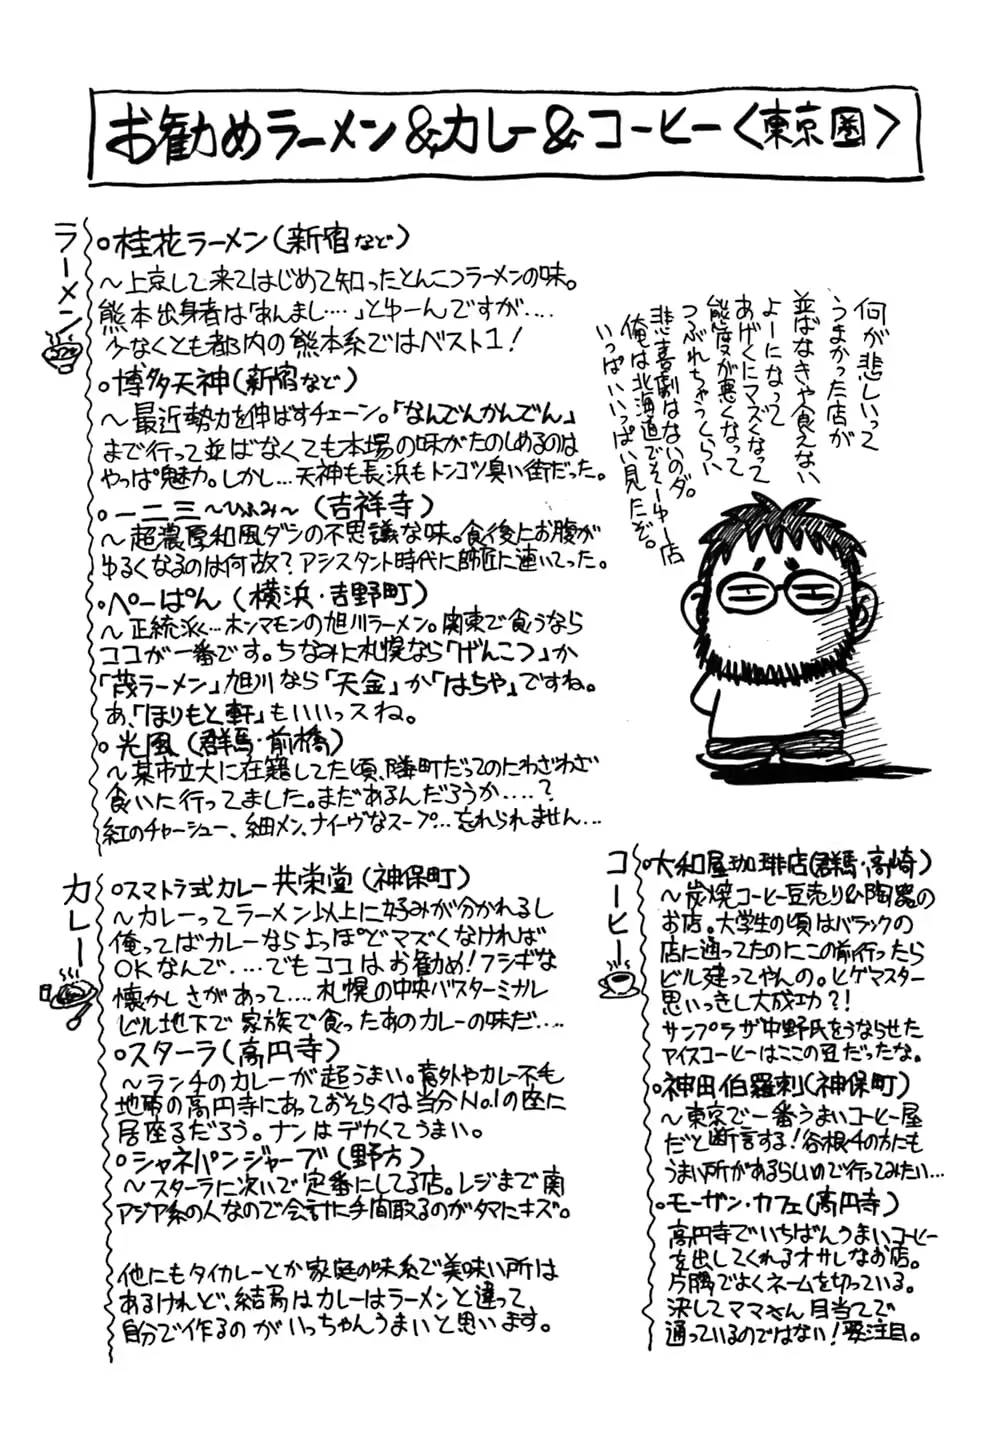 お勧めラーメン&カレー&コーヒー〈東京圏〉
ラーメン
○桂花ラーメン(新宿など)
～上京して来てはじめて知ったとんこつラーメンの味。
熊本出身者は「あんまし‥‥」とゆーんですが‥‥
少なくとも都内の熊本系ではベスト1!
○博多天神(新宿など)
～最近勢力を伸ばすチェーン。「なんでんかんでん」
まで行って並ばなくても本場の味がたのしめるのは
やっぱ魅力。しかし…天神も長浜もトンコツ臭い街だった。
○一二三～ひふみ～(吉祥寺)
～超濃厚和風ダシの不思議な味。食後にお腹が
ゆるくなるのは何故?アシスタント時代に師匠に連いてった。
○ぺーぱん(横浜・吉野町)
～正統派…ホンマモンの旭川ラーメン。関東で食うなら
ココが一番です。ちなみに札幌なら「げんこつ」か
「茂ラーメン」旭川なら「天金」か「はちや」ですね。
あ、「ほりもと軒」もいいっスね。
○光風(群馬・前橋)
～某市立大に在籍してた頃、隣町だってのにわざわざ
食いに行ってました。まだあるんだろうか‥‥?
紅のチャーシュー、細メン、ナイーヴなスープ…忘れられません…
何が悲しいって
うまかった店が
並ばなきゃ食えない
よーになって
あげくにマズくなって
態度が悪くなって
つぶれちゃうくらい
悲喜劇はないのダ。
俺は北海道でそーゆー店
いっぱいいっぱい見たぞ。
カレー
○スマトラ式カレー共栄堂(神保町)
～カレーってラーメン以上に好みが分かれるし
俺ってばカレーならよっぽどマズくなければ
OKなんで‥‥でもココはお勧め!フシギな
懐かしさがあって‥‥札幌の中央バスターミナル
ビル地下で家族で食ったあのカレーの味だ‥‥
○スターラ(高円寺)
～ランチのカレーが超うまい。意外やカレー不毛
地帯の高円寺にあっておそらくは当分No.1の座に
居座るだろう。ナンはデカくてうまい。
○シャネパンジャーブ(野方)
～スターラに次いで定番にしてる店。レジまで南
アジア系の人なので会計に手間取るのがタマにキズ。
他にもタイカレーとか家庭の味系で美味い所は
あるけれど、結局はカレーはラーメンと違って
自分で作るのがいっちゃんうまいと思います。
コーヒー
○大和屋珈琲店(群馬・高崎)
～炭焼コーヒー豆売り&陶器の
お店。大学生の頃はバラックの
店に通ってたのにこの前行ったら
ビル建ってやんの。ヒゲマスター
思いっきし大成功?!
サンプラザ中野氏をうならせた
アイスコーヒーはここの豆だったな。
○神田伯羅剌(神保町)
～東京で一番うまいコーヒー屋
だと断言する!谷根千の方にも
うまい所があるらしいので行ってみたい…
○モーザン・カフェ(高円寺)
高円寺でいちばんうまいコーヒー
を出してくれるオサレなお店。
片隅でよくネームを切っている。
決してママさん目当てで
通っているのではない!要注目。